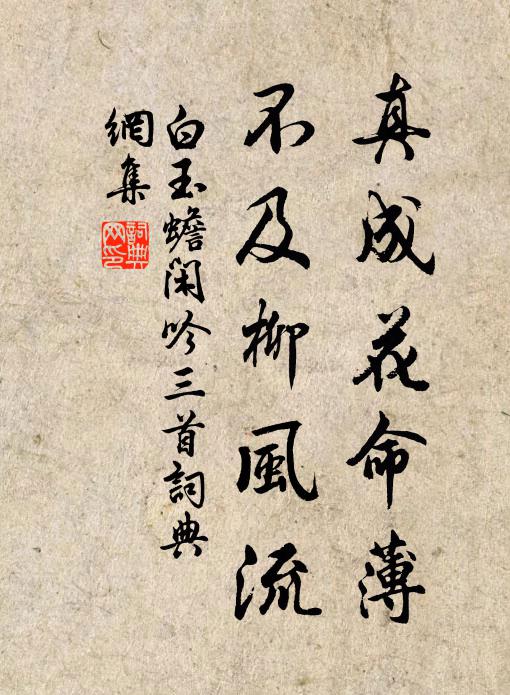 真成花命薄
不及柳風流
白玉蟾閑吟三首詞典
網集
詞典
网印